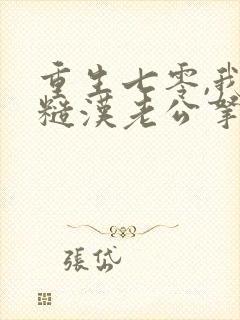 重生七零,我
糙漢老公拏
張岱